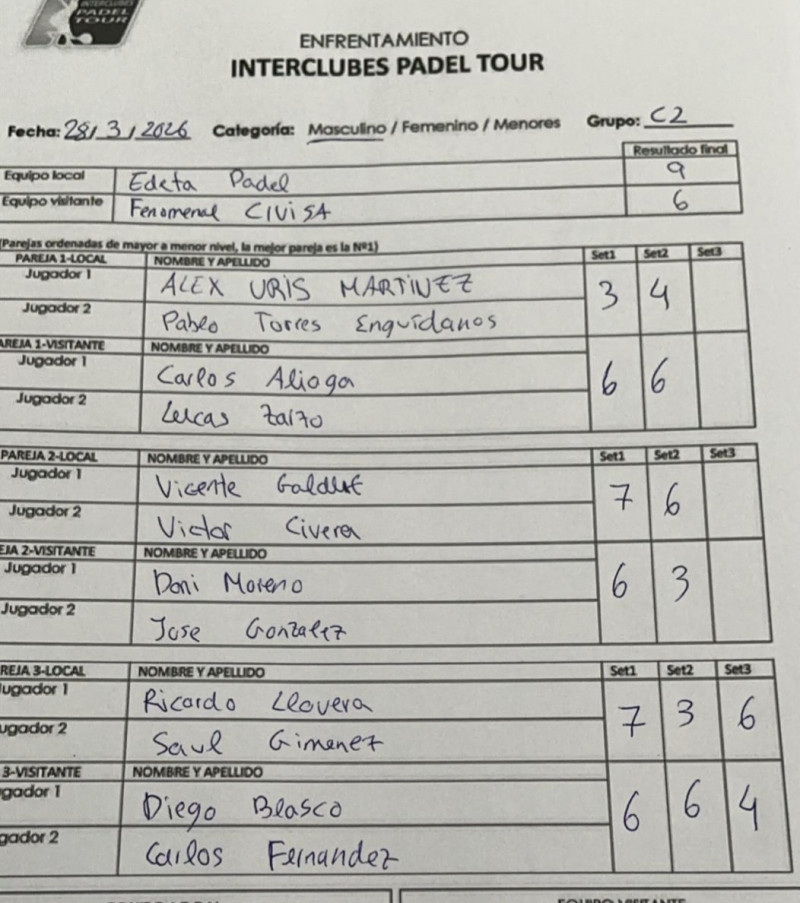 INTERCLUBES
PADEL
TOUR
ENFRENTAMIENTO
INTERCLUBES PADEL TOUR
Fecha: 28/3/2026 Categoría: Masculino / Femenino / Menores Grupo: C2
Resultado final
Equipo local Edeta Padel 9
Equipo visitante Fenomenal CIVISA 6
(Parejas ordenadas de mayor a menor nivel, la mejor pareja es la Nº1)
PAREJA 1-LOCAL NOMBRE Y APELLIDO Set1 Set2 Set3
Jugador 1 ALEX URIS MARTINEZ 3 4
Jugador 2 Pablo Torres Enguídanos
AREJA 1-VISITANTE NOMBRE Y APELLIDO
Jugador 1 Carlos Alioga 6 6
Jugador 2 Lucas Zaizo
PAREJA 2-LOCAL NOMBRE Y APELLIDO Set1 Set2 Set3
Jugador 1 Vicente 7 6
Jugador 2 Victor Civera
EJA 2-VISITANTE NOMBRE Y APELLIDO
Jugador 1 Dani Moreno 6 3
Jugador 2 Jose Gonzalez
REJA 3-LOCAL NOMBRE Y APELLIDO Set1 Set2 Set3
ugador 1 Ricardo Llavera 7 3 6
ugador 2 Saul Gimenez
3-VISITANTE NOMBRE Y APELLIDO
gador 1 Diego Blasco 6 6 4
gador 2 Carlos Fernandez
EQUIPO VISITANTE